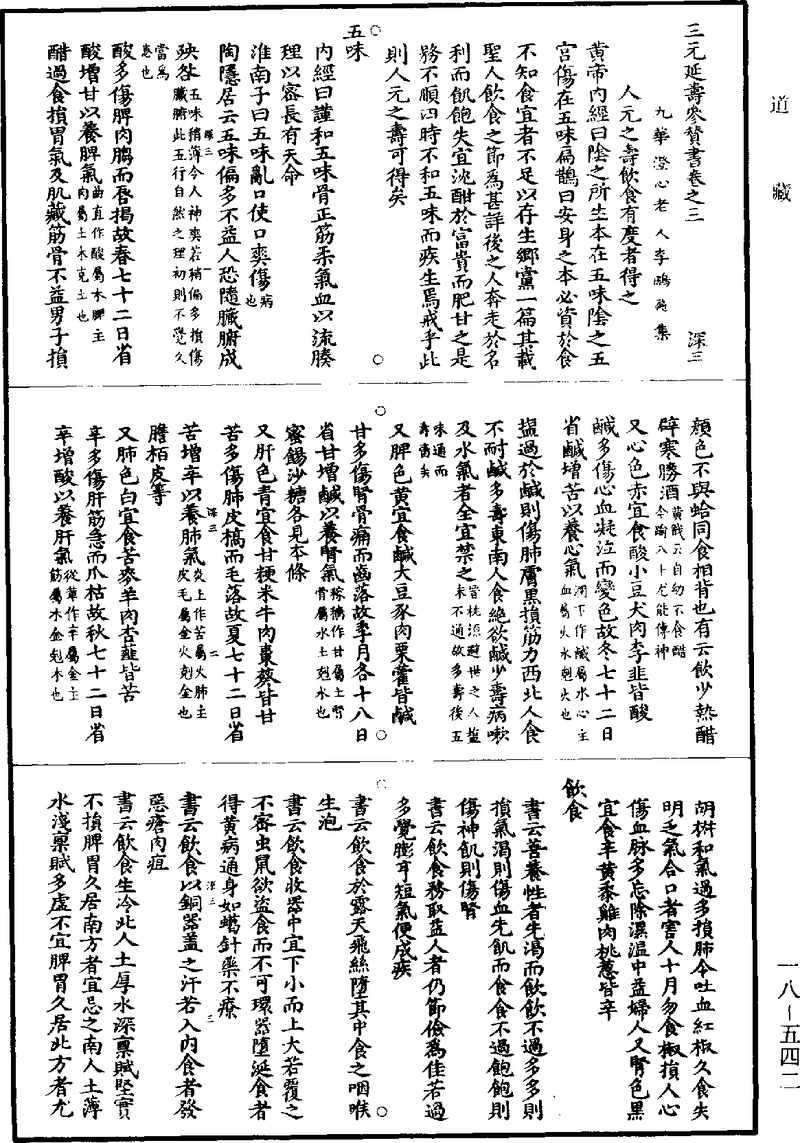 道藏
三元延壽參贊書卷之三
深三
九華澄心老人李鵬飛集
人元之壽飲食有度者得之
黃帝內經曰陰之所生本在五味陰之五
宮傷在五味扁鵲曰安身之本必資於食
不知食宜者不足以存生鄉黨一篇其載
聖人飲食之節爲甚詳後之人奔走於名
利而飢飽失宜沈酣於富貴而肥甘之是
務不順四時不和五味而疾生焉戒乎此
則人元之壽可得矣
五味
內經曰謹和五味骨正筋柔氣血以流腠
理以密長有天命
淮南子曰五味亂口使口爽傷病也
陶隱居云五味偏多不益人恐隨臟腑成
殃咎五味稍薄令人神爽若稍偏多損傷臟腑此五行自然之理初則不覺久
當爲患也
酸多傷脾肉䐢而唇揭故春七十二日省
酸增甘以養脾氣曲直作酸屬木脾主肉屬土木克土也
醋過食損胃氣及肌臟筋骨不益男子損
顏色不與蛤同食相背也有云飲少熱醋
辟寒勝酒黃戩云自幼不食醋今逾八十尤能傳神
又心色赤宜食酸小豆犬肉李韭皆酸
鹹多傷心血凝泣而變色故冬七十二日
省鹹增苦以養心氣潤下作鹹屬水心主血屬火水剋火也
鹽過於鹹則傷肺膚黑損筋力西北人食
不耐鹹多壽東南人食絕欲鹹少壽病嗽
及水氣者全宜禁之晉桃源避世之人鹽味不通故多壽後五
味通而壽啬矣
又脾色黃宜食鹹大豆豕肉栗藿皆鹹
甘多傷腎骨痛而齒落故季月各十八日
省甘增鹹以養腎氣稼穡作甘屬土腎骨屬水土剋水也
蜜餳沙糖各見本條
又肝色青宜食甘粳米牛肉棗葵皆甘
苦多傷肺皮槁而毛落故夏七十二日省
苦增辛以養肺氣炎上作苦屬火肺主皮毛屬金火剋金也
膽栢皮等
又肺色白宜食苦麥羊肉杏薤皆苦
辛多傷肝筋急而爪枯故秋七十二日省
辛增酸以養肝氣從革作辛屬金肝主筋屬木金剋木也
胡椒和氣過多損肺令吐血紅椒久食失
明乏氣合口者害人十月勿食椒損人心
傷血脉多忘除濕溫中益婦人又腎色黑
宜食辛黃黍雞肉桃蔥皆辛
飲食
書云善養性者先渴而飲飲不過多多則
損氣渴則傷血先飢而食食不過飽飽則
傷神飢則傷腎
書云飲食務取益人者仍節儉爲佳若過
多覺膨亨短氣便成疾
書云飲食於露天飛絲墮其中食之咽喉
生泡
書云飲食收器中宜下小而上大若覆之
不密虫鼠欲盜食而不可環器墮涎食者
得黃病通身如蠟針藥不療
書云飲食以銅器蓋之汗若入內食者發
惡瘡肉疽
書云飲食生冷北人土厚水深稟賦堅實
不損脾胃久居南方者宜忌之南人土薄
水淺稟賦多虛不宜脾胃久居北方者尤
一八—五四二